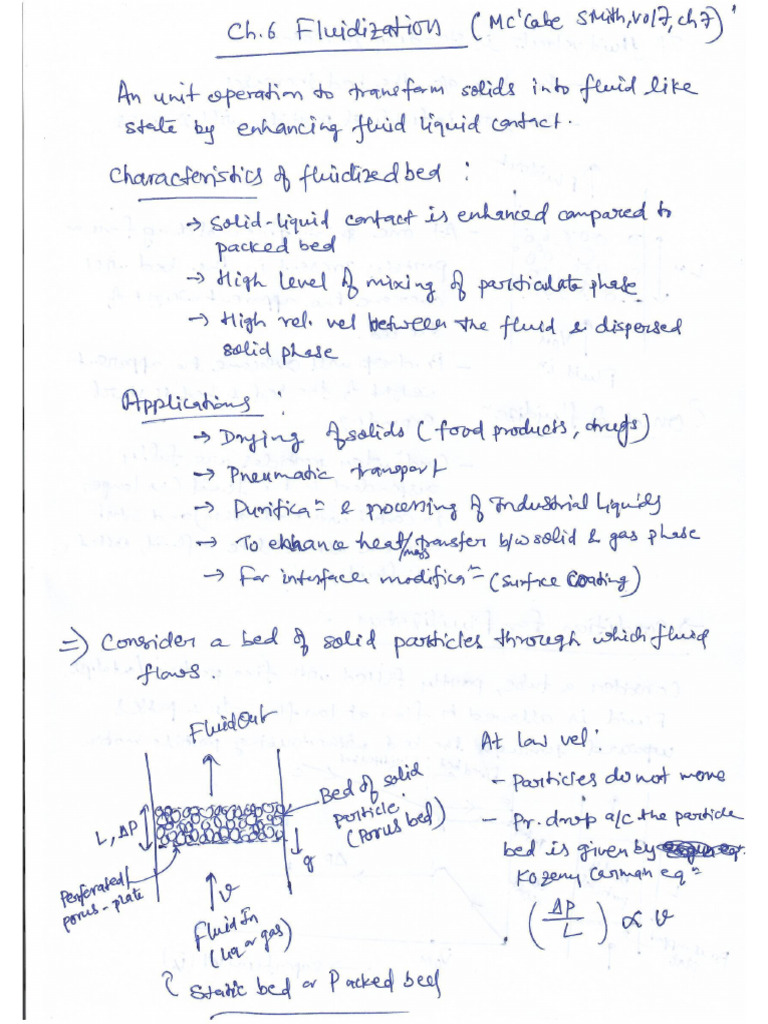 Ch.6 Fluidization (Mc'Cabe Smith, vol7, ch7)
An unit operation to transform solids into fluid like
state by enhancing fluid liquid contact.
Characteristics of fluidized bed :
→ Solid-liquid contact is enhanced compared to
packed bed
→ High level of mixing of particulate phase
→ High rel. vel between the fluid & dispersed
solid phase
Applications :
→ Drying of solids (food products, drugs)
→ Pneumatic transport
→ Purificaⁿ & processing of Industrial Liquids
→ To enhance heat/mass transfer b/w solid & gas phase
→ For interface modificaⁿ (Surface Coating)
⇒) Consider a bed of solid particles through which fluid
flows.
Fluid Out
L, ΔP
Bed of solid
particle.
(Porus bed)
g
Perforated/
porus-plate
v
Fluid In
(Liq or gas)
Static bed or Packed bed
At low vel:
- Particles do not move
- Pr. drop a/c the particle
bed is given by
Kozeny Carman eqⁿ
(ΔP/L) ∝ v